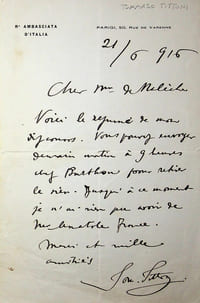 TOMMASO TITTONI
Rª AMBASCIATA
D'ITALIA
PARIGI, 50, RUE DE VARENNE
21/6 916
Cher Mr de
Voici le résumé de mon
discours. Vous pouvez envoyer
demain matin à 9 heures
chez pour retirer
le sien. Jusqu'à ce moment
je n'ai rien pu avoir de
Mr Anatole France.
Merci et mille
amitiés
Tom. Tittoni